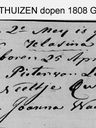 THUIZEN dopen 1808 G
2e May is
Klasina
boren 25 April
Pieter van L
Neeltje Qu
Joanna Wa